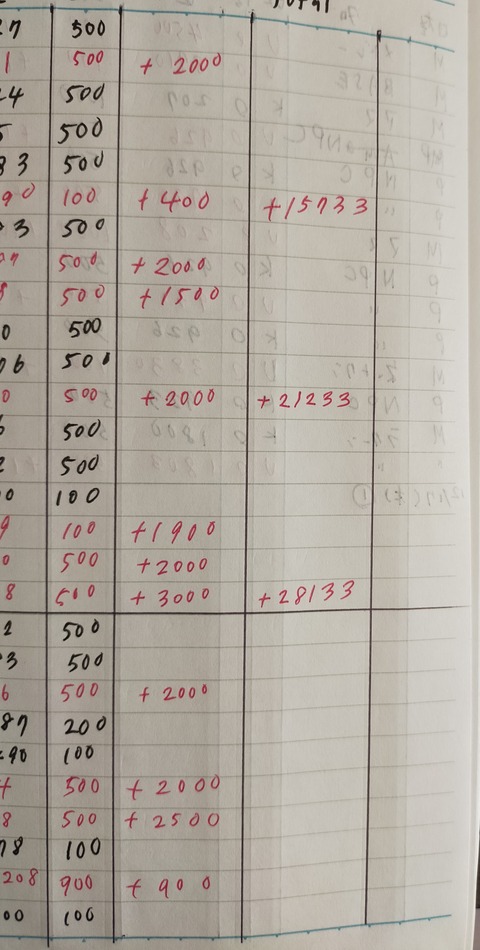 27 500
1 500 + 2000
24 500
5 500
83 500
90 100 + 400 +15733
3 500
500 + 2000
8 500 + 1500
0 500
76 500
0 500 + 2000 + 21233
500
2 500
0 100
9 100 +1900
0 500 +2000
8 500 + 3000 +28133
2 500
3 500
6 500 + 2000
87 200
90 100
4 500 + 2000
8 500 + 2500
78 100
208 900 + 900
00 100